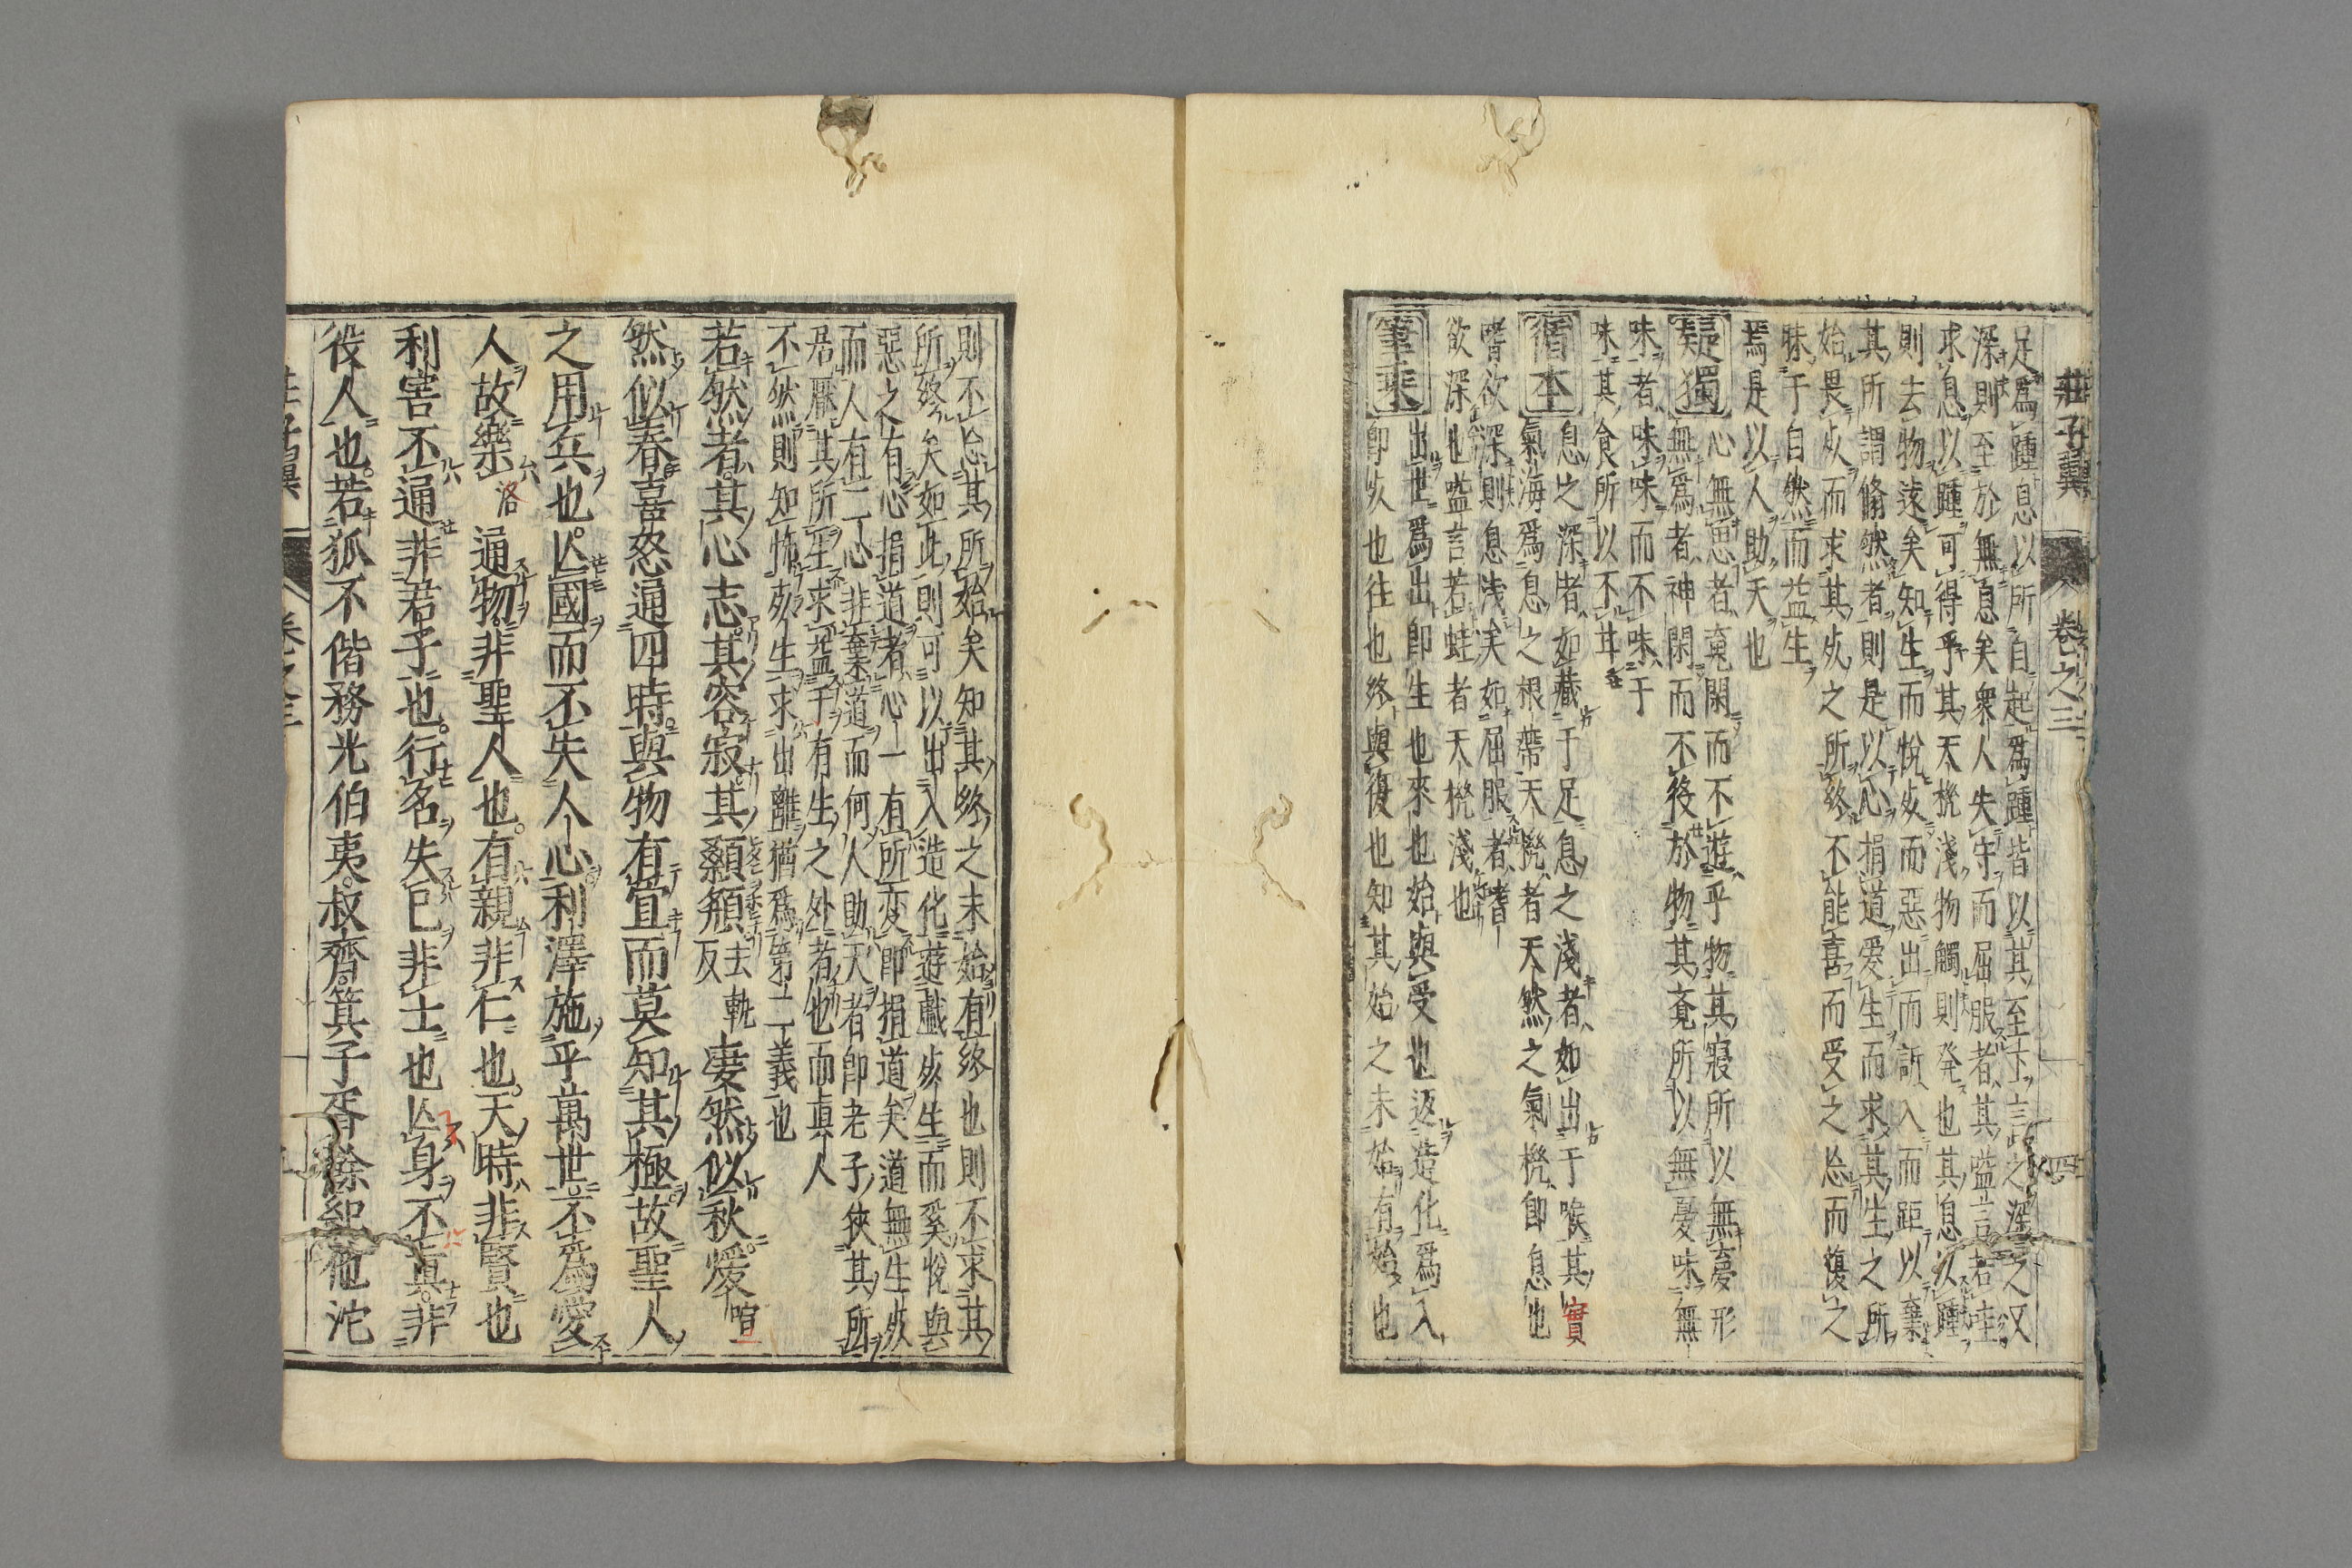 莊子翼 卷之三 四
足爲踵息以所自起爲踵皆以其至下言之深之又
深則至於無息矣衆人失守而屈服者其嗌言若哇
求息以踵可得乎其天機淺物觸則発也其息以踵
則去物遠矣知生而悅死而惡出而訢入而距以棄
其所謂翛然者則是以心捐道愛生而求其生之所
始畏死而求其死之所終不能喜而受之忘而復之
昧于自然而益生
焉是以人助天也
疑獨
心無思者竟閑而不遊乎物其寢所以無夢形
無爲者神閑而不役於物其竟所以無憂味無
味者味味而不味于
味其食所以不甘
循本
息之深者如藏于足息之淺者如出于喉其實
氣海爲息之根蒂天機者天然之氣機即息也
嗜欲深則息浅矣如屈服者嗜
欲深也嗌言若蛙者天機淺也
筆乘
出世爲出卽生也來也始與受也返造化爲入
卽死也往也終與復也知其始之未始有始也
則不忘其所始矣知其終之未始有終也則不求其
所終矣如此則可以出入造化遊戲死生而奚悅與
惡之有心捐道者心一有所変即捐道矣道無生死
而人有二心非棄道而何人助天者卽老子狹其所
居厭其所生求益于有生之外者也而真人
不然則知怖死生求出離猶爲第二義也
若然者其心志其容寂其顙頯去軌反凄然似秋煖喧
然似春喜怒通四時與物有宜而莫知其極故聖人
之用兵也亾國而不失人心利澤施乎萬世不爲愛
人故樂洛通物非聖人也有親非仁也天時非賢也
利害不通非君子也行名失已非士也亾身不真非
役人也若狐不偕務光伯夷叔齊箕子胥餘紀他